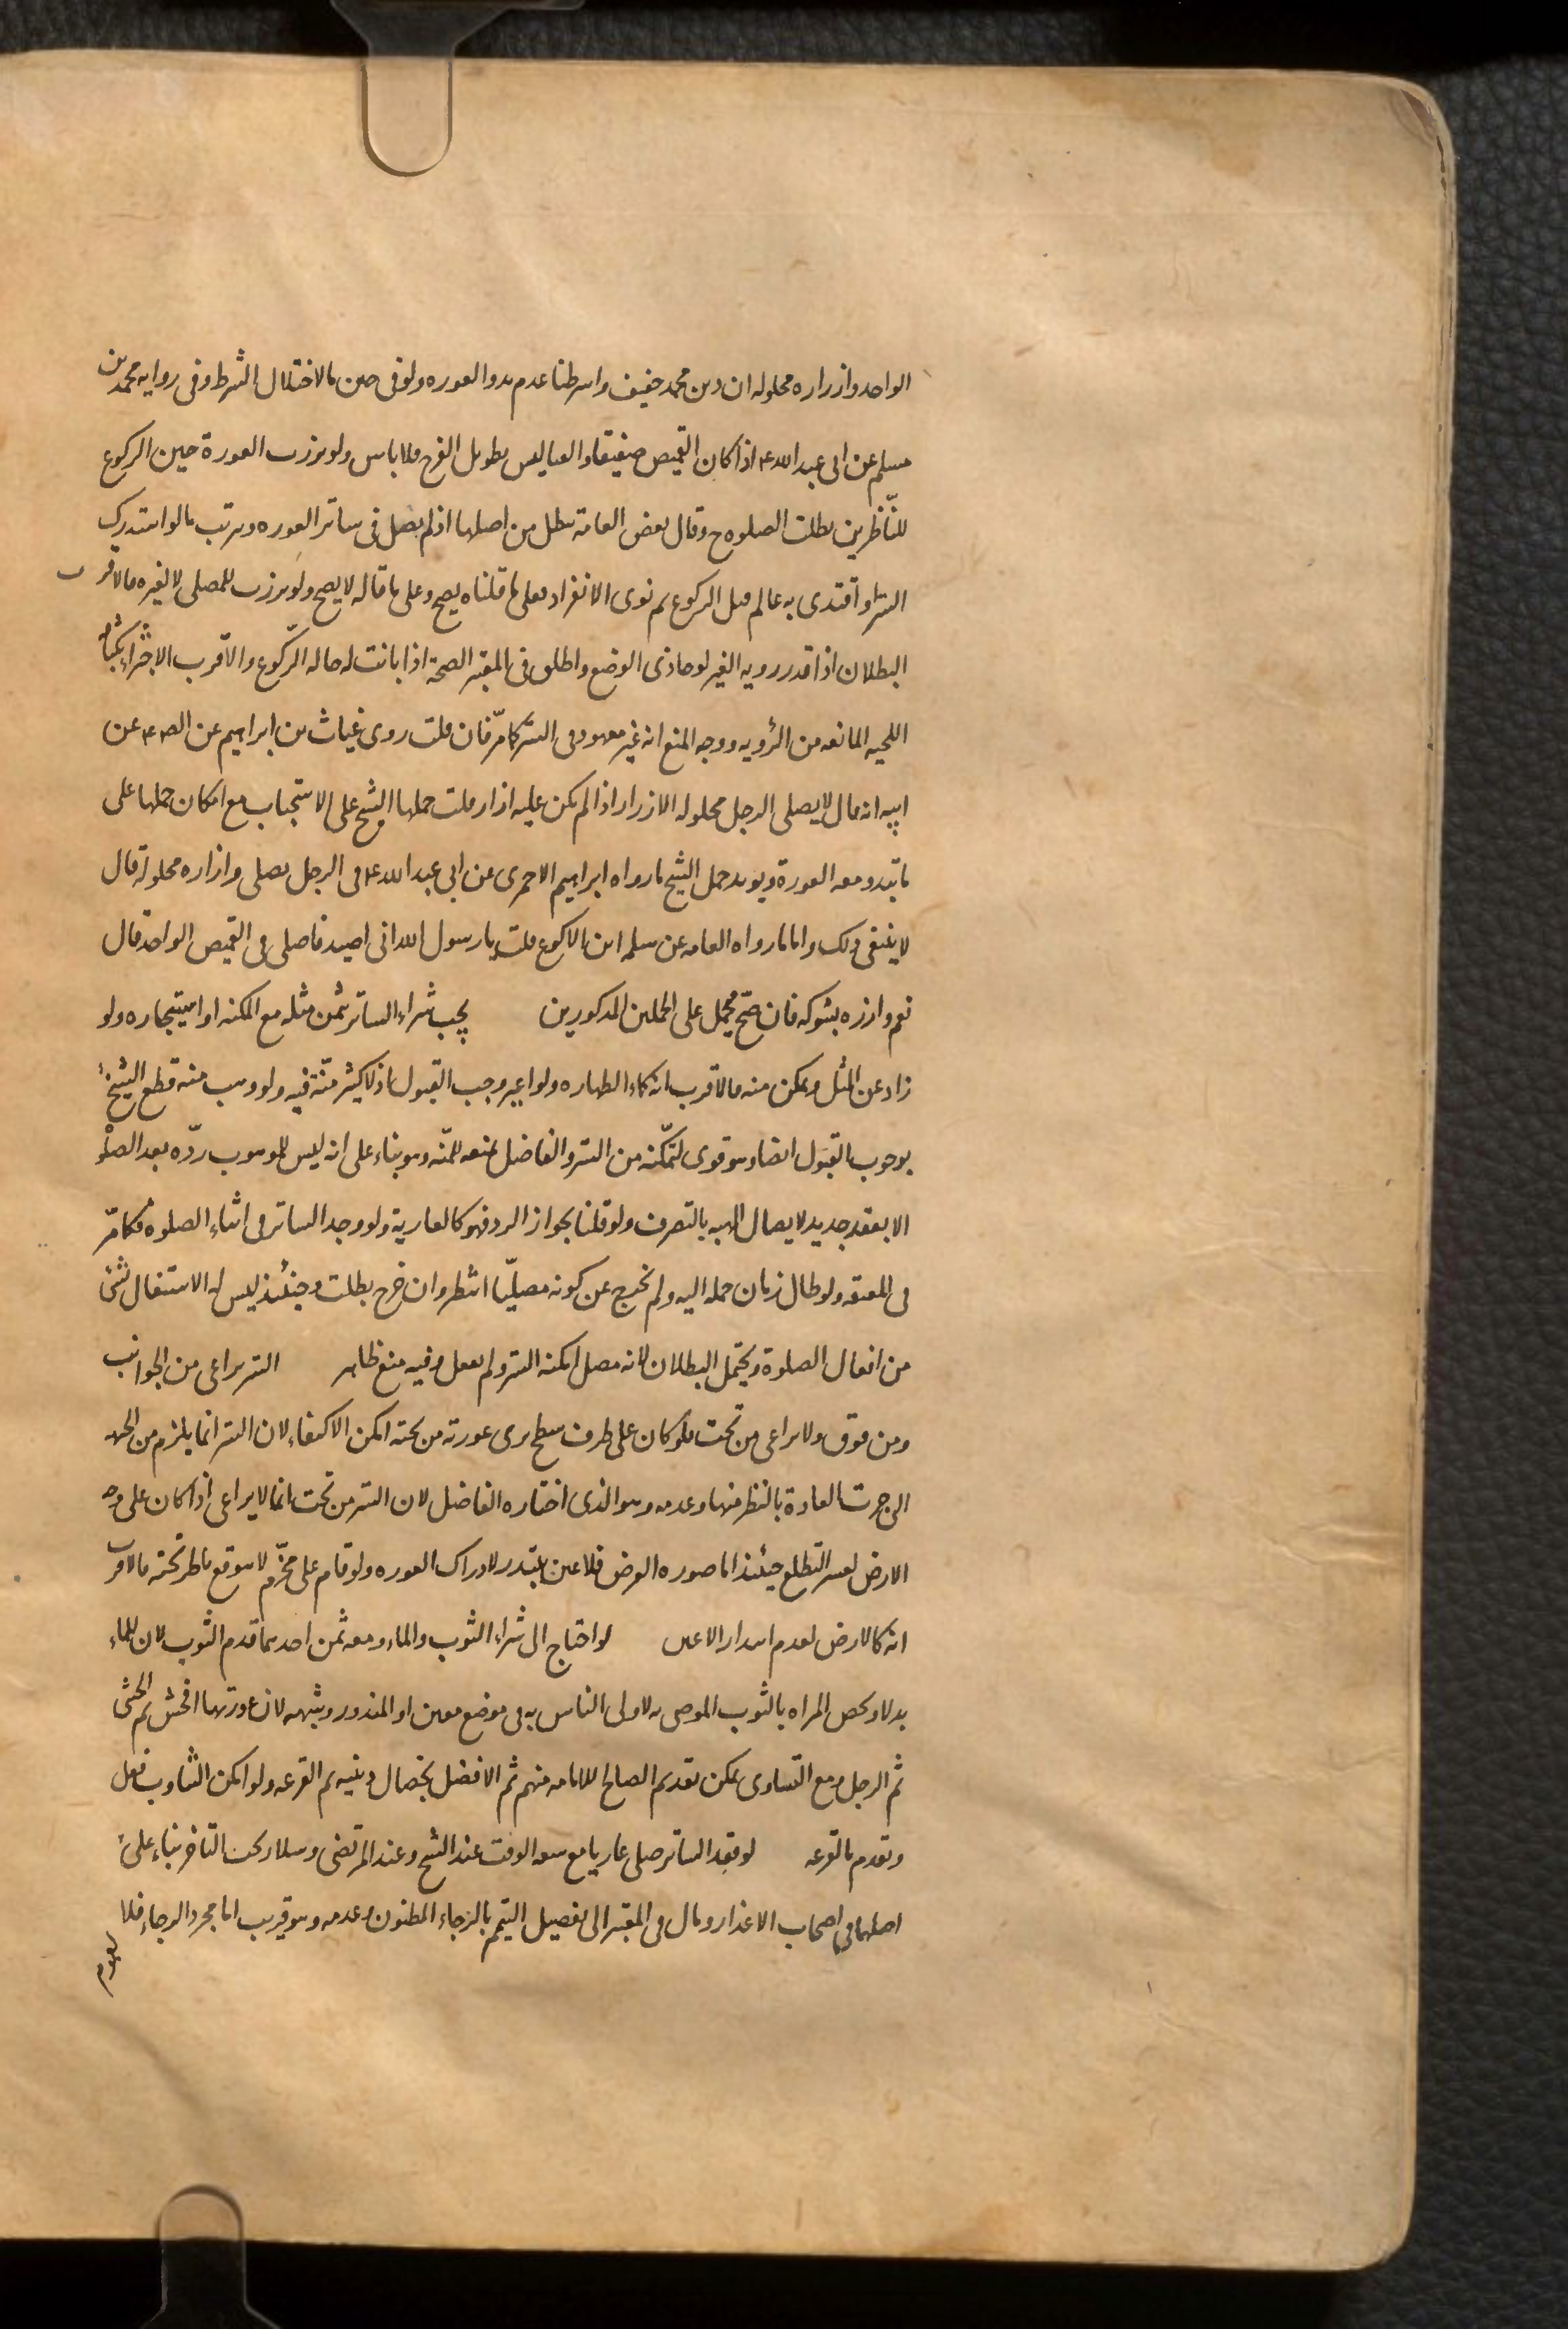 الواحد وازراره محلوله ان دين محمد حنيف واشرطنا عدم بدو العوره ولو في حين ما لاختلال الشرط وفي روايه محمد بن
مسلم عن ابي عبد الله ع اذا كان القميص صفيقا او القبا ليس بطويل الفرج فلا باس ولو برزت العورة حين الركوع
للنّاظرين بطلت الصلوه ح وقال بعض العامة تبطل من اصلها اذ لم يصل في ساتر العوره ويترتب ما لو استدرك
الستر او اقتدى به عالم قبل الركوع ثم نوى الانفراد فعلى ما قلناه يصح وعلى ما قاله لا يصح ولو برزت للمصلي لا لغيره فالاقرب
البطلان اذا قدر رويه الغير لو حاذى الوضع واطلق في المعتبر الصحة اذا بانت له حاله الرّكوع والاقرب الاجتزاء بكثافه
اللحيه المانعه من الرؤيه ووجه المنع انه غير معهود في الستر كما مرّ فان قلت روى غياث بن ابراهيم عن الص ع عن
ابيه انه قال لا يصلي الرجل محلوله الازرار اذا لم يكن عليه ازار قلت حملها الشيخ على الاستحباب مع امكان حملها على
ما تبدو معه العورة ويويد حمل الشيخ ما رواه ابراهيم الاحمري عن ابي عبد الله ع في الرجل يصلي وازراره محلولة قال
لا ينبغي ذلك واما ما رواه العامه عن سلمه ابن الاكوع قلت يا رسول الله اني اصيد فاصلي في القميص الواحد قال
نعم وازره بشوكه فان صحّ محمل على الحملين المذكورين يجب شراء الساتر بثمن مثله مع المكنه او استيجاره ولو
زاد عن المثل وتمكن منه فالاقرب انه كماء الطهاره ولو اعير وجب القبول اذ لا كثير منّة فيه ولو وهب منه قطع الشيخ
بوجوب القبول ايضا وهو قوي لتمكّنه من الستر والفاضل يمنعه للمنّه وهو بناء على انه ليس للموهوب ردّه بعد الصلوة
الا بعقد جديد لايصال الهبه بالتصرف ولو قلنا بجواز الرد فهو كالعارية ولو وجد الساتر في اثناء الصلوة فكما مرّ
في المعتقه ولو طال زمان حمله اليه ولم يخرج عن كونه مصليّا انتظر وان خرج بطلت وحينئذ ليس له الاشتغال بشئ
من افعال الصلوة ويحتمل البطلان لانه مصل امكنه الستر ولم يفعل وفيه منع ظاهر الستر يراعى من الجوانب
ومن فوق ولا يراعى من تحت فلو كان على طرف سطح يرى عورته من تحته امكن الاكتفاء لان الستر انما يلزم من الجهه
التي جرت العادة بالنظر منها وعدمه وهو الذي اختاره الفاضل لان الستر من تحت انما لا يراعى اذا كان على وجه
الارض لعسر التطلع حينئذ اما صوره الفرض فلاعين تبتدر لادراك العوره ولو قام على مخرّم لا يتوقع ناظر تحته فالاقرب
انه كالارض لعدم ابتدار الاعين لو احتاج الى شراء الثوب والماء ومعه ثمن احدهما قدم الثوب لان للماء
بدلا ويخص المراه بالثوب الموصى به لاولى الناس به في موضع معين او المنذور وشبهه لان عورتها افحش ثم الخنثى
ثم الرجل ومع التساوي يمكن تقديم الصالح للامامه منهم ثم الافضل بخصال دينيه ثم القرعه ولو امكن التناوب فعل
وتقدم بالقرعه لو فقد الساتر صلى عاريا مع سعه الوقت عند الشيخ وعند المرتضى وسلار يجب التاخر بناء على
اصلهما في اصحاب الاعذار ومال في المعتبر الى تفصيل التيمم بالرجاء المظنون وعدمه وهو قريب اما مجرد الرجاء فلا